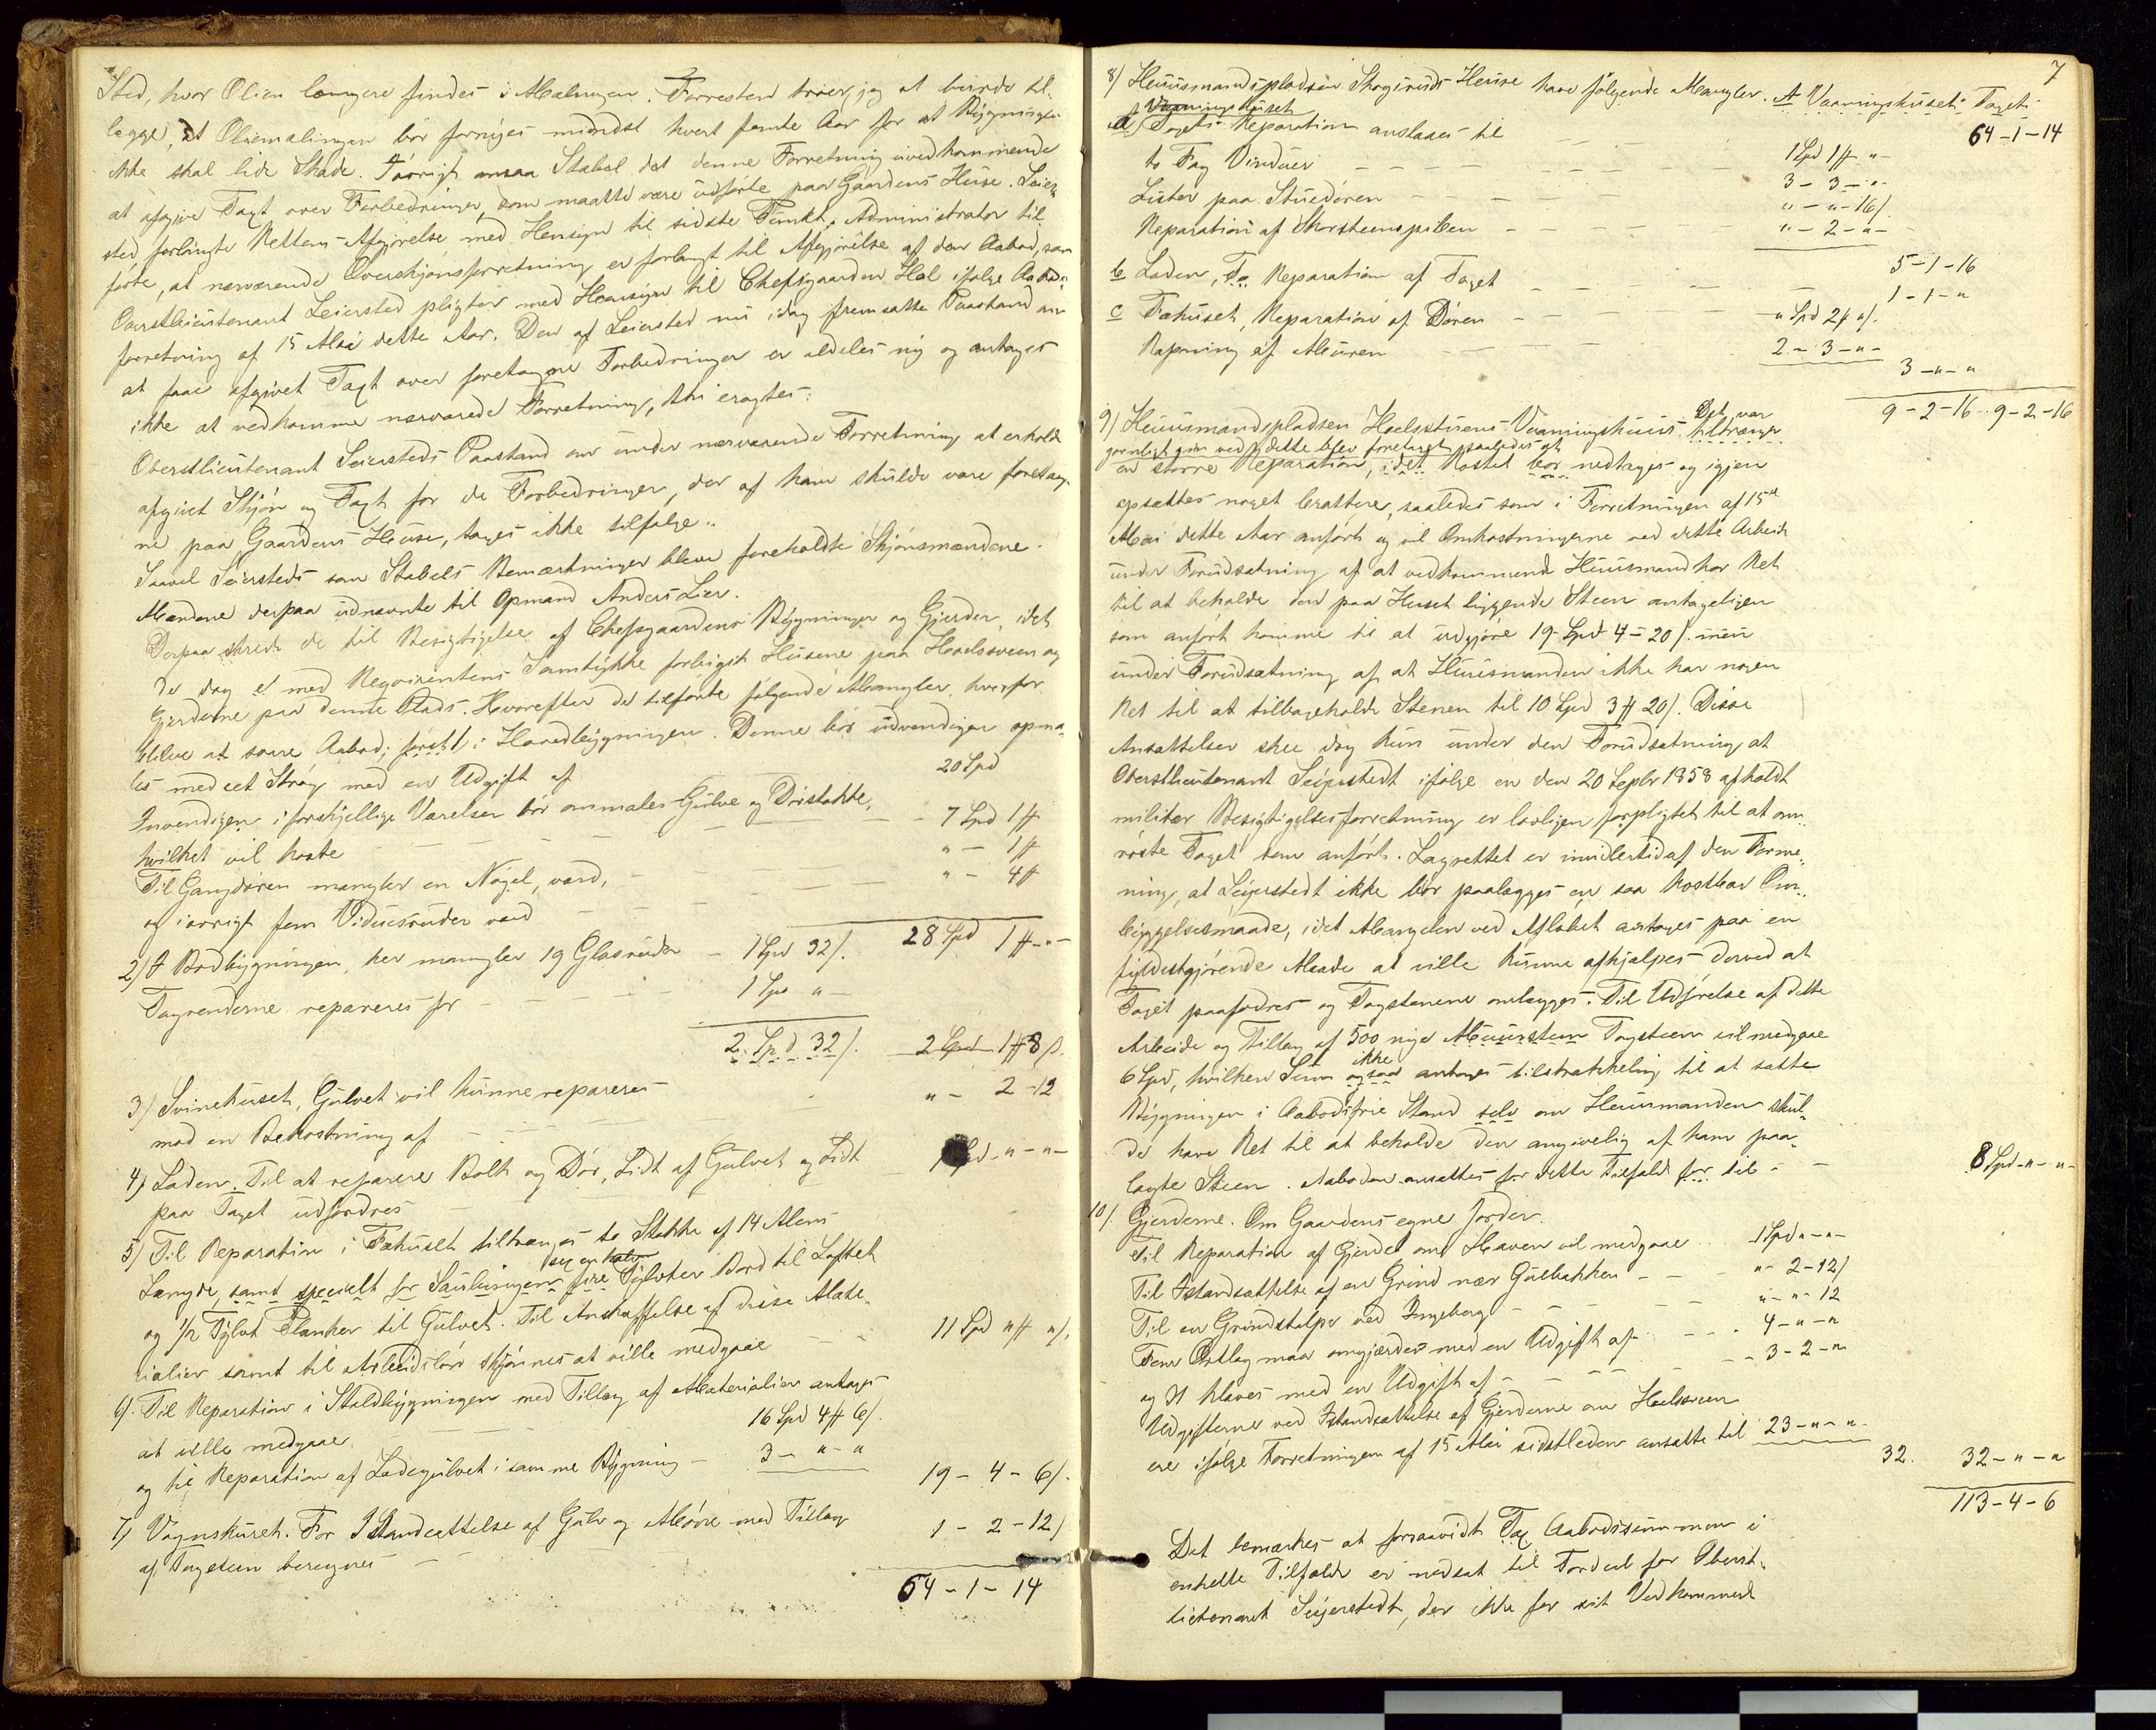 Sted, hvor Olien længere findes i Malingen. Forresten troer jeg at burde til-
lægge, at Oliemalingen bør fornyes mindst hvert femte Aar for at Bygningen
ikke skal lide Skade. Iøvrigt ansaa Stabel det denne Forretning uvedkommende
at afgive Taxt over Forbedringer, som maatte være udførte paa Gaardens Huse. Seier-
sted forlangte Rettens Afgjørelse med Hensyn til sidste Punkt. Administrator til-
førte, at nærværende Overskjønsforretning er forlangt til Afgjørelse af den Aabod, som
Oberstlieutenant Seiersted pligter med Hensyn til Chefsgaarden Hol ifølge Aabods-
forretning af 15 Mai dette Aar. Den af Seiersted nu idag fremsatte Paastand om
at faae afgivet Taxt over foretagne Forbedringer er aldeles ny og antages
ikke at vedkomme nærværende Forretning, thi eragtes:
Oberstlieutenant Seiersteds Paastand om under nærværende Forretning at erholde
afgivet Skjøn og Taxt for de Forbedringer, der af ham skulde være foretag-
ne paa Gaardens Huse, tages ikke tilfølge.
Saavel Seiersteds som Stabels Bemærkninger bleve foreholdte Skjønsmændene.
Mændene derpaa udnævnte til Opmand Anders Lier.
Derpaa skred de til Besigtigelse af Chefsgaardens Bygninger og Gjerder, idet
de dog med Reqvirentens Samtykke forbigik Husene paa Hoelsveen og
Gjerderne paa denne Plads. Hvorefter de tilførte følgende Mangler, hvorfor
bliver at svare Aabod; først 1, i Hovedbygningen. Denne bør udvendigen opma-
les med eet Strøg med en Udgift af 20 Spd
Indvendigen i forskjellige Værelser bør ommales Gulve og Dørstokke,
hvilket vil koste 7 Spd 1 #
Til Gangdøren mangler en Nøgel, værd, " - 1 #
og iøvrigt fem Vinduesruder værd " - 4 #
28 Spd 1 # - " -
2) I Bodbygningen, her mangler 19 Glasruder - 1 Spd 32 /.
Tagrenderne repareres for 1 Spd " -
2 Spd 32 /. 2 Spd 1 # 8 ß.
3) Svinehuset, Gulvet vil kunne repareres
mod en Bekostning af " - 2 - 12
4) Laden. Til at reparere Bolk og Dør, Lidt af Gulvet og Lidt
paa Taget udfordres 1 Spd - " - " -
5) Til Reparation i Fæhuset tiltrænges to Stokke af 14 Alens
Længde, samt specielt for Saubingen fire Tylvter Bord til Loftet
og 1/2 Tylvt Planker til Gulvet. Til Anskaffelse af disse Mate-
rialier samt til Arbeidsløn skjønnes at ville medgaae 11 Spd " # " /.
6). Til Reparation i Staldbygningen med Tillæg af Materialier antages
at ville medgaae 16 Spd 4 # 6 /.
og til Reparation af Ladegulvet i samme Bygning - 3 - " - "
19 - 4 - 6 /.
7) Vognskuret. For Istandsættelse af Gulv og Mønne med Tillæg
af Tagsteen beregnes 1 - 2 - 12 /
64 - 1 - 14
7
8) Huusmandspladsen Skogiruds Huse have følgende Mangler. A Vaaningshuset Taget
64 - 1 - 14
Vaaningshuset
a) Tagets Reparation anslaaes til 1 Spd 1 # " -
to Fag Vinduer 3 - 3 - " -
Lister paa Stuedøren " - " - 16 /
Reparation af Skorsteenspiben " - 2 - " -
5 - 1 - 16
b Laden, To Reparation af Taget 1 - 1 - "
c Fæhuset, Reparation af Døren " Spd 2 # " /.
Rapning af Muren 2 - 3 - " -
3 - " - "
9 - 2 - 16 9 - 2 - 16
9) Huusmandspladsen Hoelsstuens Vaaningshuus Det var tiltrænger
en større Reparation, idet Røstet bør nedtages og igjen
opsættes noget brattere, saaledes som i Forretningen af 15de
Mai dette Aar anført og vil Omkostningerne ved dette Arbeide
under Forudsætning af at vedkommende Huusmand har Ret
til at beholde den paa Huset liggende Steen antageligen
som anført komme til at udgjøre 19 Spd 4 - 20 /. men
under Forudsætning af at Huusmanden ikke har nogen
Ret til at tilbageholde Stenen til 10 Spd 3 # 20 /. Disse
Ansættelser skee dog kun under den Forudsætning at
Oberstlieutenant Seyerstedt ifølge en den 20 Septbr 1858 afholdt
militær Besigtigelsesforretning er lovligen forpligtet til at om-
røste Taget som anført. Lagrettet er imidlertid af den Forme-
ning, at Seyerstedt ikke bør paalægges en saa kostbar Om-
byggelsesmaade, idet Mangelen ved Afløbet antages paa en
fyldestgjørende Maade at ville kunne afhjælpes derved at
Taget paafodres og Tagstenene omlægges. Til Udførelse af dette
Arbeide og Tillæg af 500 nye Muursteen Tagsteen vil medgaae
6 Spd, hvilken Sum ikke ogsaa antages tilstrækkelig til at sætte
Bygningen i aabodsfrie Stand selv om Huusmanden skul-
de have Ret til at beholde den angivelig af ham paa-
lagte Steen. Aaboden ansættes for dette Tilfælde for til - - 8 Spd - " - " -
10). Gjerderne. Om Gaardens egne Jorder.
Til Reparation af Gjerdet om Haven vil medgaae 1 Spd " - " -
Til Istandsættelse af en Grind nær Gulbakken - " - 2 - 12 /
Til en Grindstolpe ved Ingeberg " - " - 12
Fem Ortlag maa omgjærdes med en Udgift af 4 - " - "
og It klaves med en Udgift af 3 - 2 - "
Udgifterne ved Istandsættelse af Gjerderne om Hoelsveen
ere ifølge Forretningen af 15 Mai sidstleden ansatte til 23 - " - "
32. 32 - " - "
113 - 4 - 6
Det bemærkes at forsaavidt Tax Aabodssummen i
enkelte Tilfælde er nedsat til Fordeel for Oberst-
lieutenant Seyerstedt, der ikke for sit Vedkommende